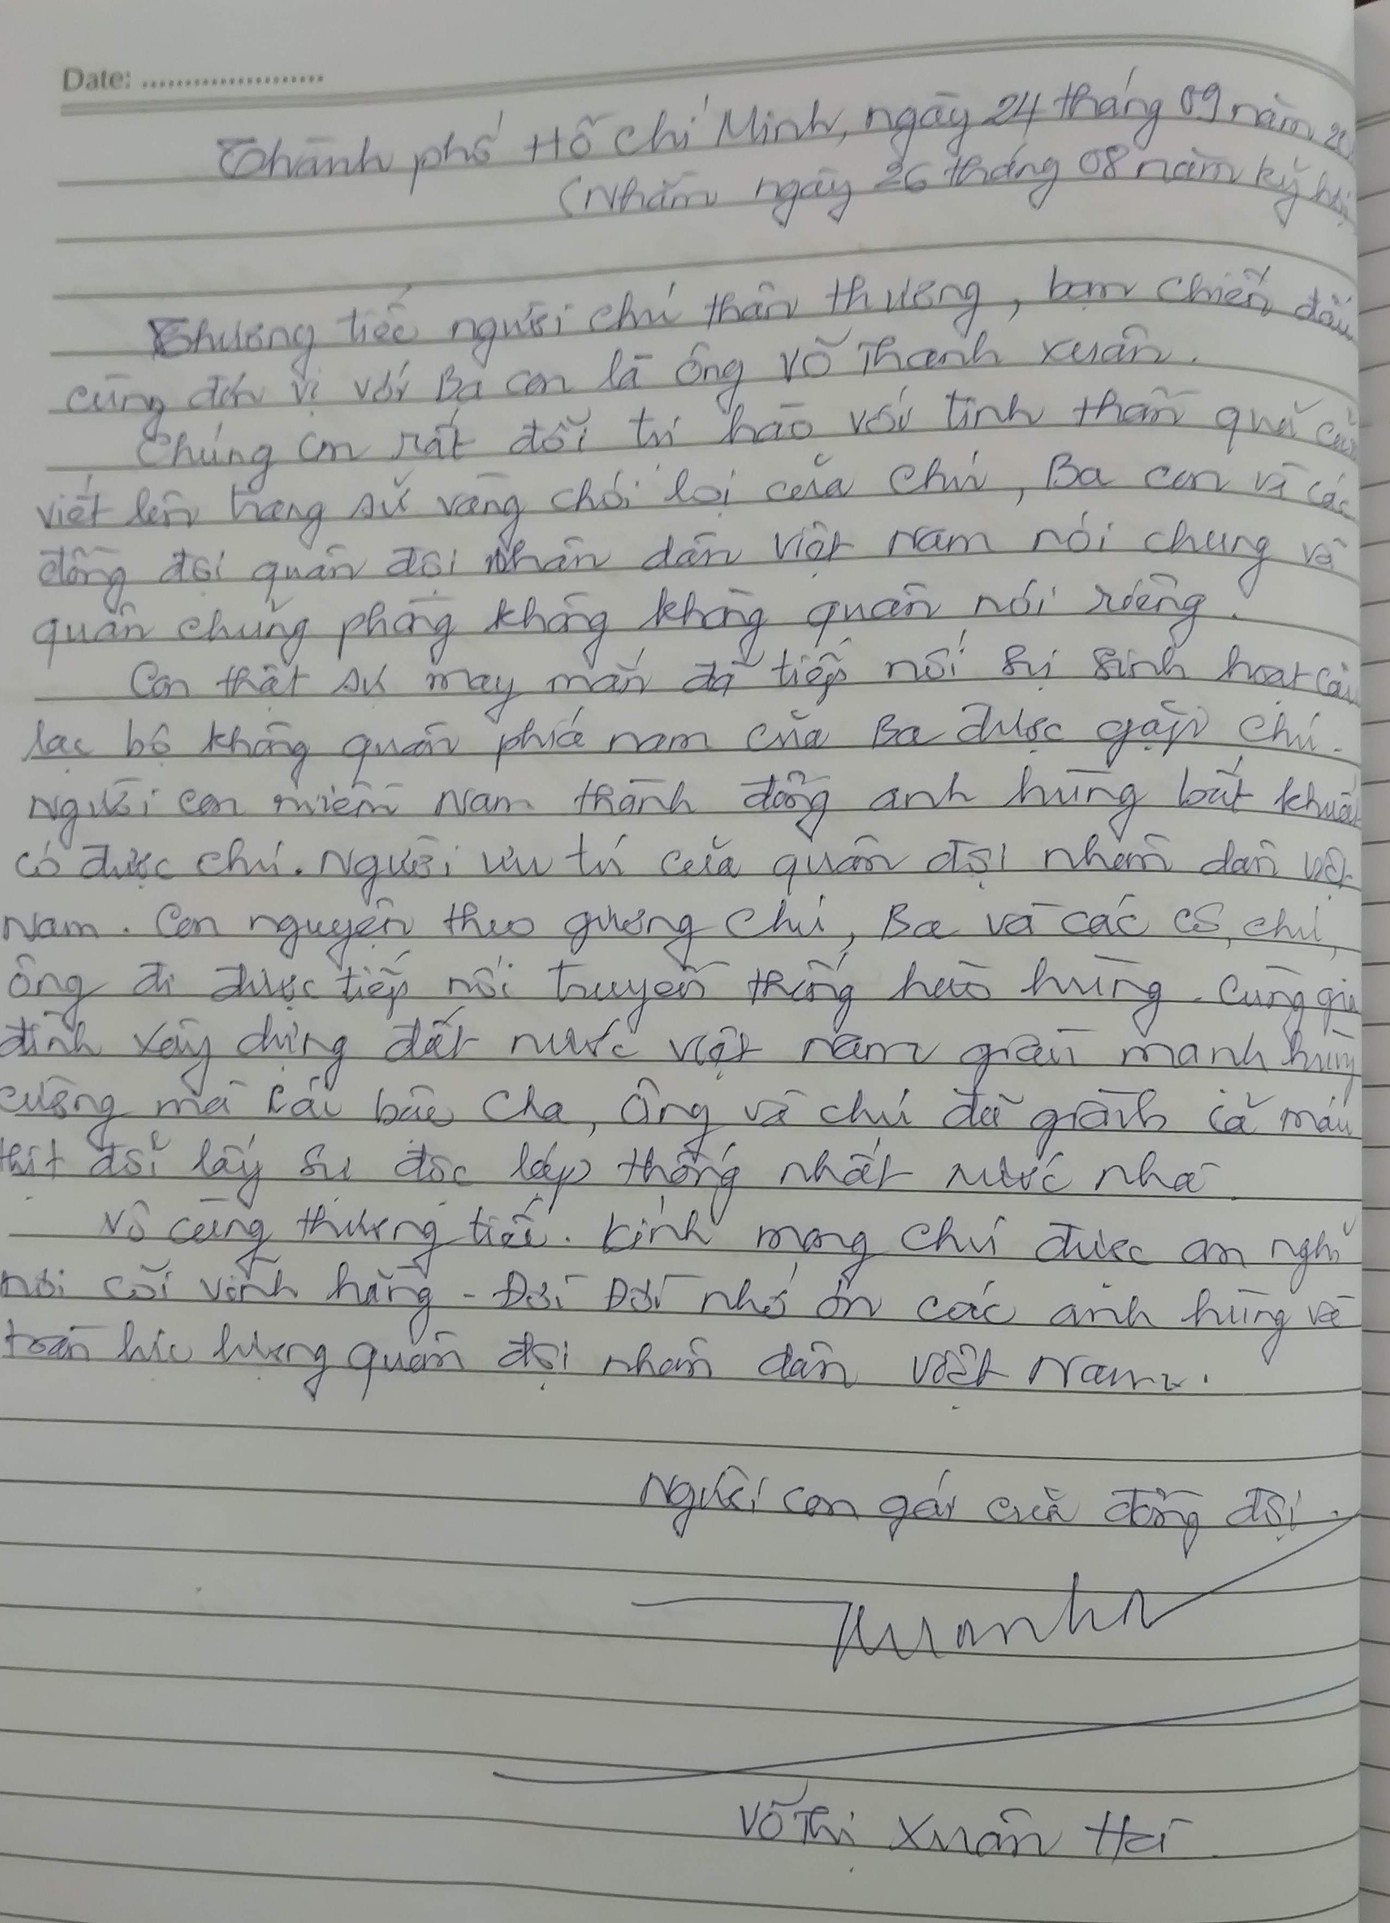 Date: .....................
Thành phố Hồ Chí Minh, ngày 24 tháng 09 năm 20
(Nhằm ngày 26 tháng 08 năm kỷ hợi
Thương tiếc người chú thân thương, bạn chiến đấu
cùng đơn vị với Ba con là ông Võ Thanh Xuân.
Chúng con rất đỗi tự hào với tinh thần quả cảm
viết lên trang sử vàng chói lọi của chú, Ba con và các
đồng đội quân đội nhân dân Việt Nam nói chung và
quân chủng phòng không không quân nói riêng.
Con thật sự may mắn đã tiếp nối sự sinh hoạt câu
lạc bộ không quân phía nam của Ba được gặp chú.
Người con miền Nam thành đồng anh hùng bất khuất
có được chú. Người ưu tú của quân đội nhân dân việt
Nam. Con nguyện theo gương chú, Ba và các cô, chú,
ông đi được tiếp nối truyền thống hào hùng. Cùng gia
đình xây dựng đất nước việt nam giàu mạnh hùng
cường mà các bậc cha, ông và chú đã giành cả máu
thịt đổi lấy sự độc lập thống nhất nước nhà
Vô cùng thương tiếc. Kính mong chú được an nghỉ
nơi cõi vĩnh hằng - Đời Đời nhớ ơn các anh hùng và
toàn lực lượng quân đội nhân dân việt Nam.
Người con gái của đồng đội.
Võ Thị Xuân Hà